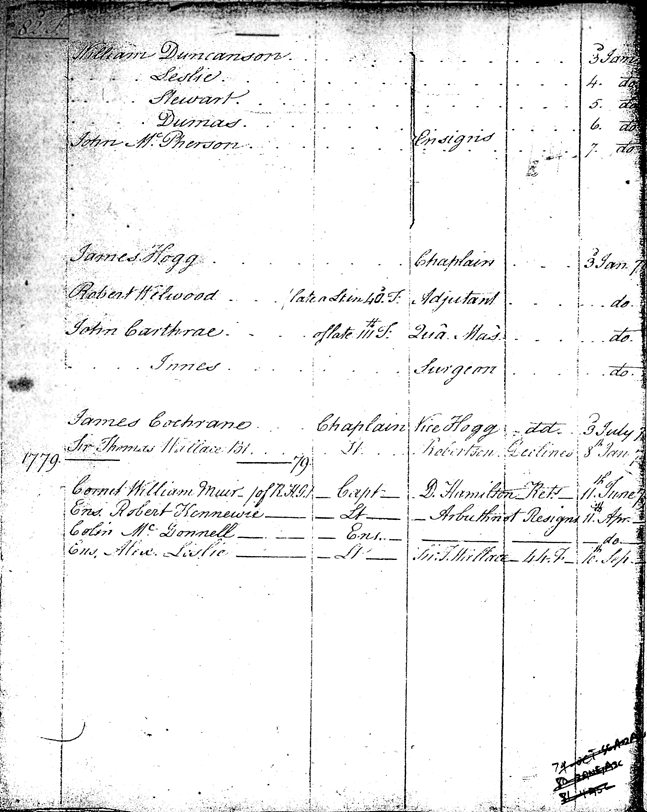 82 F.
William Duncanson 3 Jan
Leslie 4. do
Stewart 5. do
Dumas 6. do
John Mc Pherson Ensigns 7. do
James Hogg Chaplain 3 Jan 7
Robert Welwood late a Lt in 40. F. Adjutant do.
John Carthrae of late 111th F. Qua. Mas. do.
Innes Surgeon do.
James Cochrane Chaplain Vice Hogg dd. 3 July 7
Sir Thomas Wallace Bt. Lt. Robertson Declines 8th Jan 7
1779 79
Cornet William Muir of R.H.G. Capt D. Hamilton Rets 11th June 7
Ens. Robert Kennewie Lt Arbuthnot Resigns 11th Apr.
Colin Mc Donnell Ens. do
Ens. Alex. Lislie Lt Sir T. Wallace 44. F. 16th Sep.